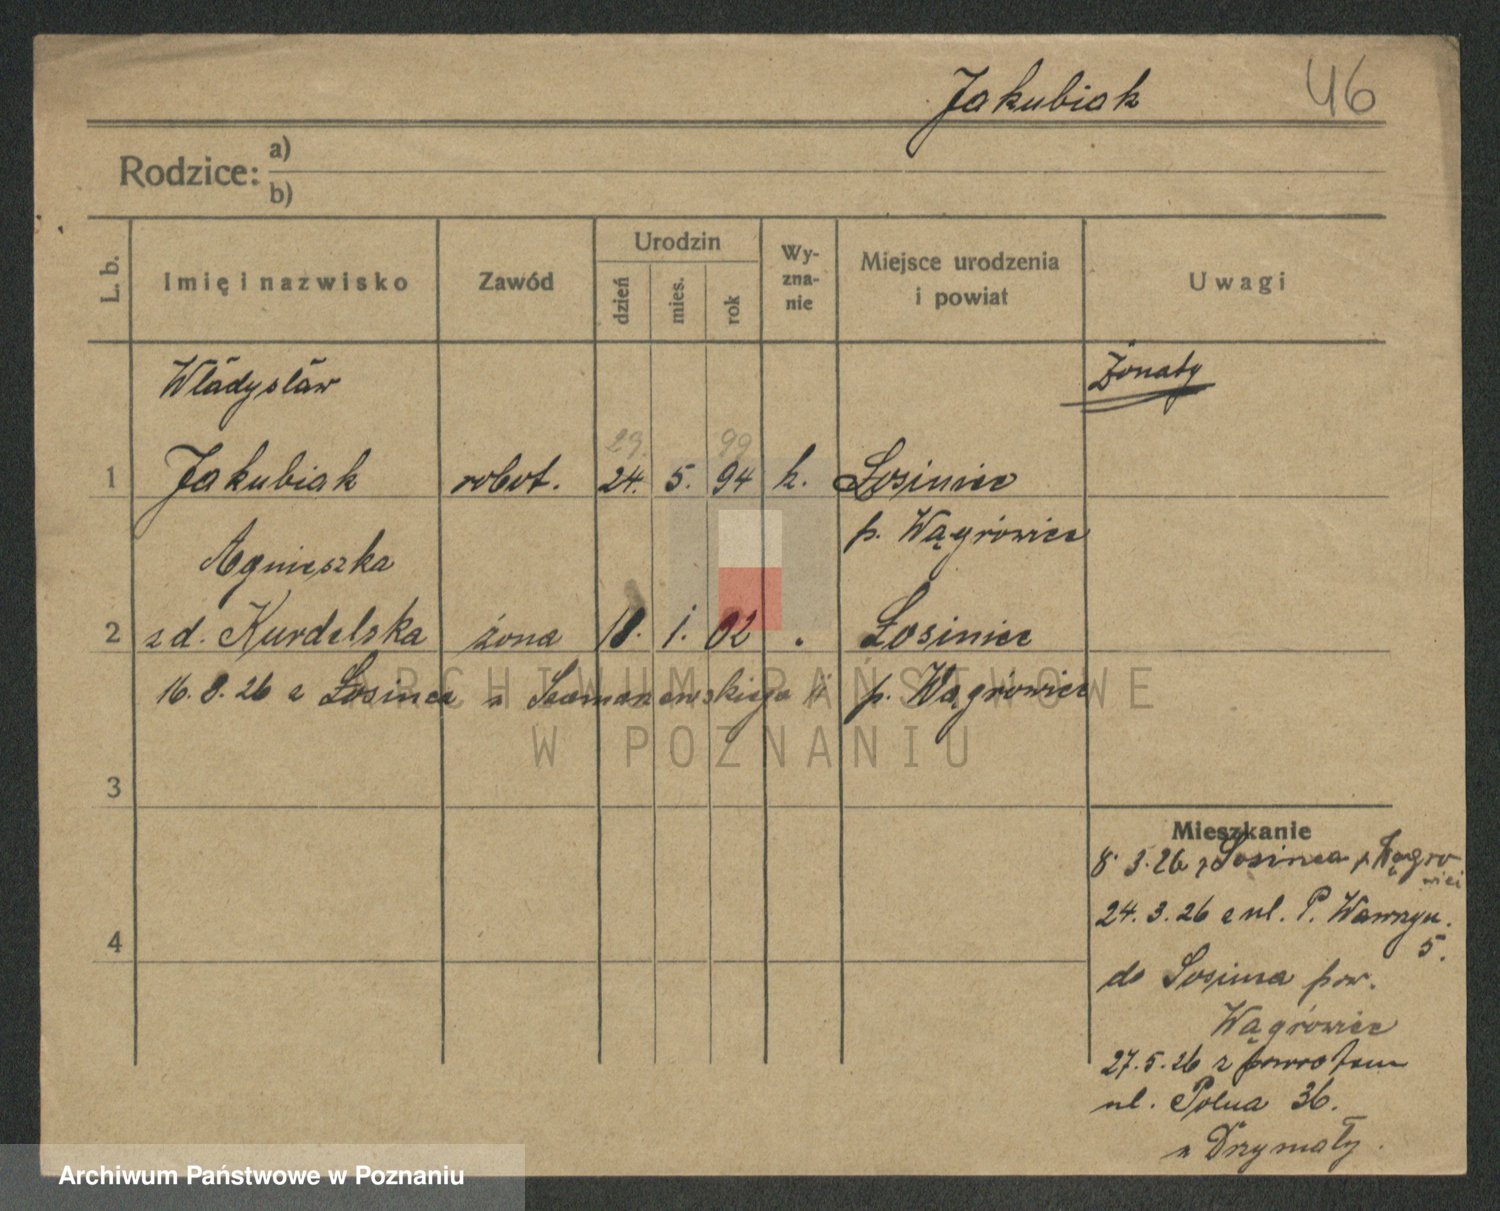 Jakubiak 46
Rodzice: a)
b)
L. b. Imię i nazwisko Zawód Urodzin dzień mies. rok Wy-zna-nie Miejsce urodzenia i powiat Uwagi
Władysław Żonaty
29. 99
1 Jakubiak robot. 24. 5. 94 k. Łosiniec
p. Wągrówiec
Agnieszka
2 z d. Kurdelska żona 18. 1. 02 " Łosiniec
16. 8. 26 z Łosinca p. Wągrówiec
ARCHIWUM PAŃSTWOWE
W POZNANIU
3
Mieszkanie
8. 3. 26 z Łosinca p. Wągro
wiec
4 24. 3. 26 z ul. P. Wawrzyn.
5.
do Łosinca pow.
Wągrówiec
27. 5. 26 z powrotem
ul. Polna 36.
u Drzymały.
Archiwum Państwowe w Poznaniu